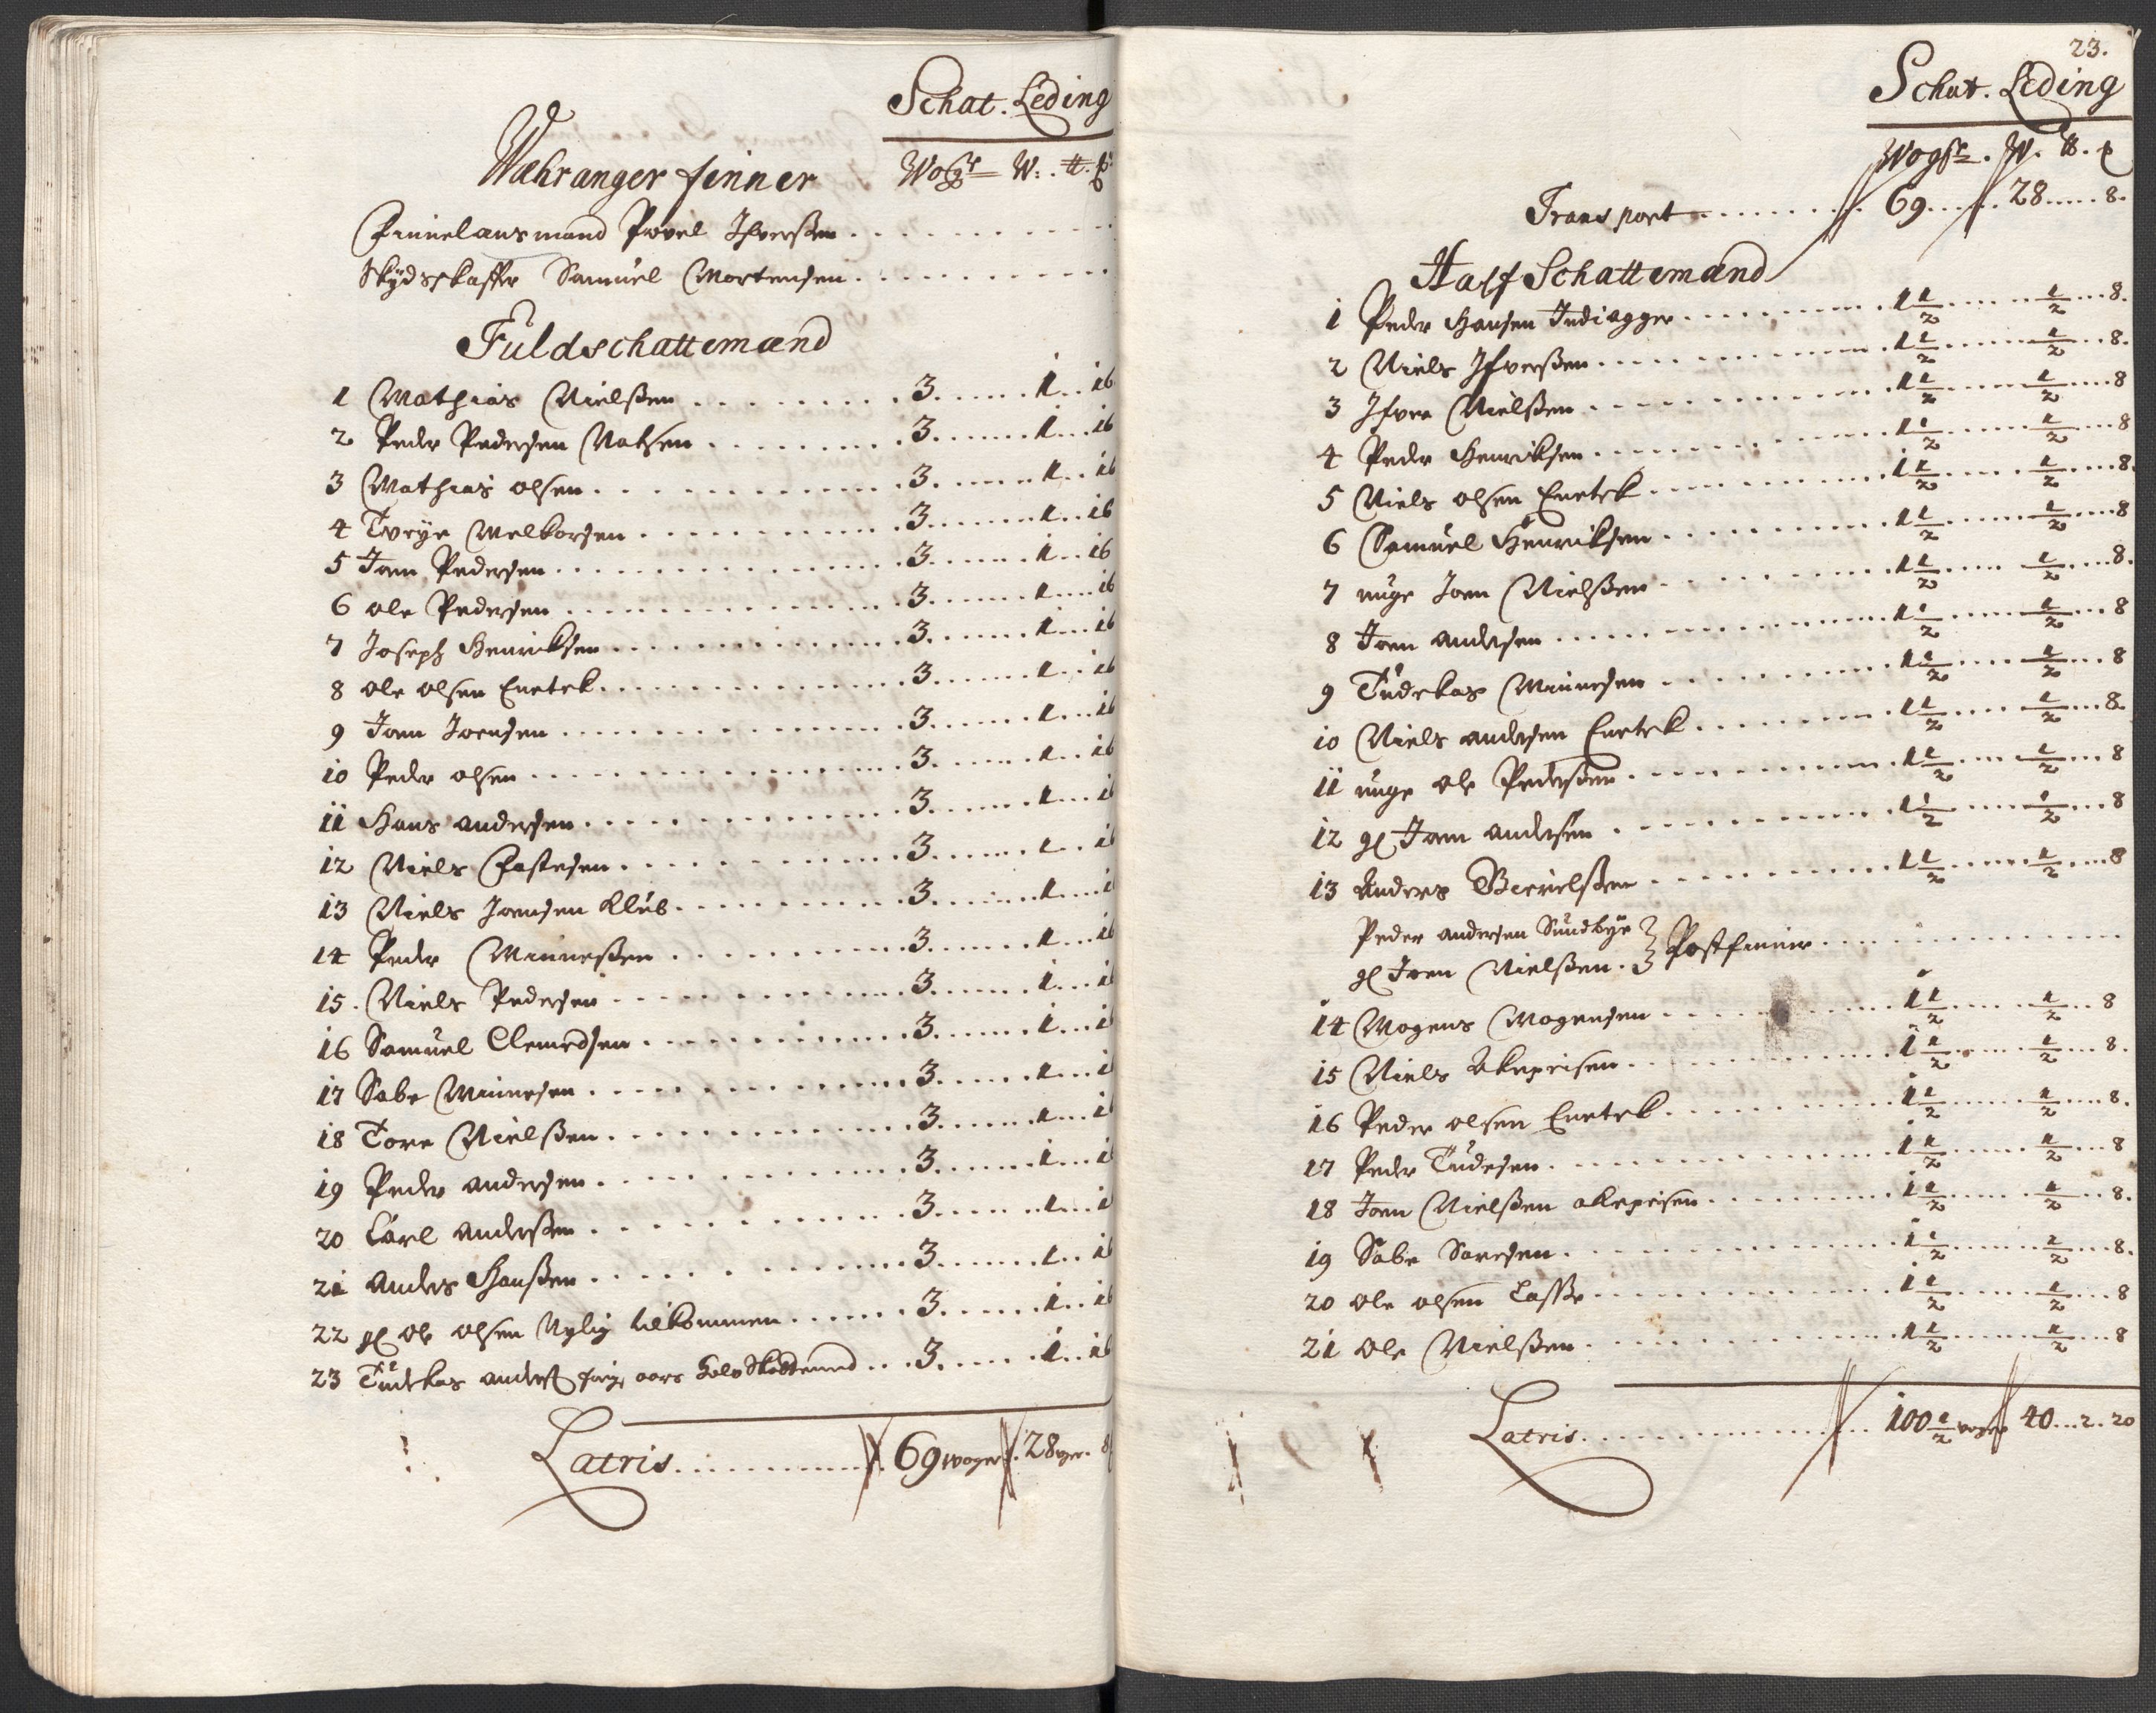 Schat. Leding
Wahranger finner Wogr W: ..
Finnelansmand Povel Ifverßen . . . . . . . . . .
Skydsskaffer Samuel Mortensen . . . . . . . . . .
Fuldschattemænd
1 Mathias Nielßen . . . . . . . . . 3 . . . . . 1 . . 16
2 Peder Pedersen . . . . . . . . 3 . . . . . 1 . . 16
3 Mathias olsen . . . . . . . . . 3 . . . . . 1 . . 16
4 Melkorsen . . . . . . . . . 3 . . . . . 1 . . 16
5 Joen Pedersen . . . . . . . . . 3 . . . . . 1 . . 16
6 ole Pedersen . . . . . . . . . 3 . . . . . 1 . . 16
7 Joseph Henriksen . . . . . . . . . 3 . . . . . 1 . . 16
8 ole olsen Enetek . . . . . . . . . 3 . . . . . 1 . . 16
9 Joen Joensen . . . . . . . . . 3 . . . . . 1 . . 16
10 Peder olsen . . . . . . . . . 3 . . . . . 1 . . 16
11 Hans andersen . . . . . . . . . 3 . . . . . 1 . . 16
12 Niels Fastesen . . . . . . . . . 3 . . . . . 1 . . 16
13 Niels Joensen Klub . . . . . . . . . 3 . . . . . 1 . . 1
14 Peder Minneßen . . . . . . . . . 3 . . . . . 1 . . 16
15. Niels Pedersen . . . . . . . . . 3 . . . . . 1 . . 16
16 Samuel Clemedsen . . . . . . . . . 3 . . . . . 1 . . 16
17 Sabe Minnesen . . . . . . . . . 3 . . . . . 1 . . 1
18 Tore Nielßen . . . . . . . . . 3 . . . . . 1 . . 16
19 Peder andersen . . . . . . . . . 3 . . . . . 1 . . 1
20 Carl anderßen . . . . . . . . . 3 . . . . . 1 . . 1
21 anders Hanßen . . . . . . . . . 3 . . . . . 1 . . 16
22 gl ole olsen Nylig tilkommen . . . . . 3 . . . . . 1 . . 16
23 Tudekas anderß forige aars halv Skattemand . . . 3 . . . . . 1 . . 16
Latris . . . . . . . . . . 69 woger . 28 wger. 8
23.
Schat. Leding
Wogr. W. ℔.
Transport . . . . . . . . . 69 . . . . . 28 . . . . 8.
Half Schattemænd
1 Peder Hansen Indiagger . . . . . . . . . 1 1/2 . . . . . 1/2 . . . 8.
2 Niels Ifverßen . . . . . . . . . 1 1/2 . . . . . 1/2 . . . 8.
3 Ifver Nielßen . . . . . . . . . 1 1/2 . . . . . 1/2 . . . 8
4 Peder Henriksen . . . . . . . . . 1 1/2 . . . . . 1/2 . . . 8
5 Niels olsen Enetek . . . . . . . . . 1 1/2 . . . . . 1/2 . . . 8.
6 Samuel Henriksen . . . . . . . . . 1 1/2 . . . . . 1/2 . . . 8
7 unge Joen Nielßen . . . . . . . . . 1 1/2 . . . . . 1/2 . . . 8.
8 Joen andersen . . . . . . . . . 1 1/2 . . . . . 1/2 . . . 8
9 Tudekas Minnesen . . . . . . . . . 1 1/2 . . . . . 1/2 . . . 8
10 Niels andersen Enetek . . . . . . . . . 1 1/2 . . . . . 1/2 . . . 8.
11 unge ole Pederßen . . . . . . . . . 1 1/2 . . . . . 1/2 . . . 8
12 gl Joen andersen . . . . . . . . . 1 1/2 . . . . . 1/2 . . . 8
13 Anders . . . . . . . . . 1 1/2 . . . . . 1/2 . . . 8
Peder andersen Sundbye
gl Joen Nielßen . } Postfinner . . . . . . . . .
14 Mogens Mogensen . . . . . . . . . 1 1/2 . . . . . 1/2 . . . 8
15 Niels Akepeisen . . . . . . . . . 1 1/2 . . . . . 1/2 . . . 8.
16 Peder olsen Enetek . . . . . . . . . 1 1/2 . . . . . 1/2 . . . 8.
17 Peder Tudesen . . . . . . . . . 1 1/2 . . . . . 1/2 . . . 8
18 Joen Nielßen akepeisen . . . . . . . . . 1 1/2 . . . . . 1/2 . . . 8.
19 Sabe Soresen . . . . . . . . . 1 1/2 . . . . . 1/2 . . . 8.
20 ole olsen Lasse . . . . . . . . . 1 1/2 . . . . . 1/2 . . . 8
21 ole Nielßen . . . . . . . . . 1 1/2 . . . . . 1/2 . . . 8
Latris . . . . . . . . . . 100 1/2 woger 40 . . . 2 . 20